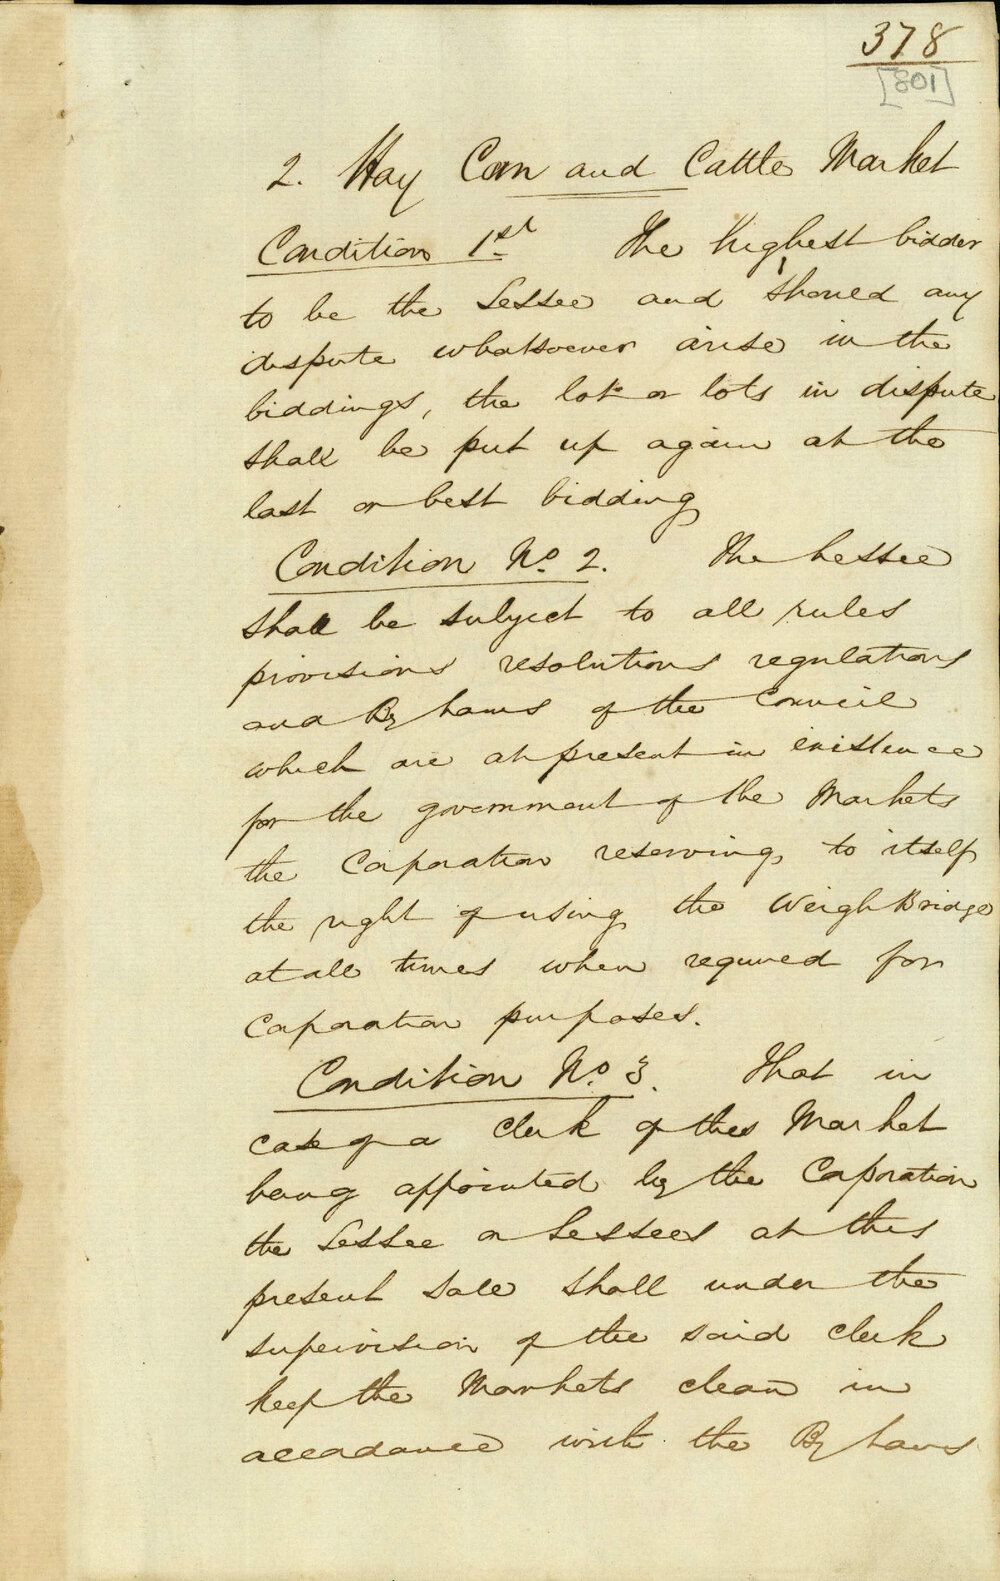 378
[801]
2. Hay Corn and Cattle Market
Condition 1st The highest bidder
to be the Lessee and should any
dispute whatsoever arise in the
biddings, the lot or lots in dispute
shall be put up again at the
last or best bidding
Condition No. 2. The Lessee
shall be subject to all rules
provisions resolutions regulations
and By Laws of the Council
which are at present in existence
for the government of the Markets
the Corporation reserving to itself
the right of using the Weigh Bridge
at all times when required for
Corporation purposes.
Condition No. 3. That in
case of a Clerk of the Market
being appointed by the Corporation
the Lessee or Lessees at this
present sale shall under the
supervision of the said Clerk
keep the Markets clean in
accordance with the By Laws